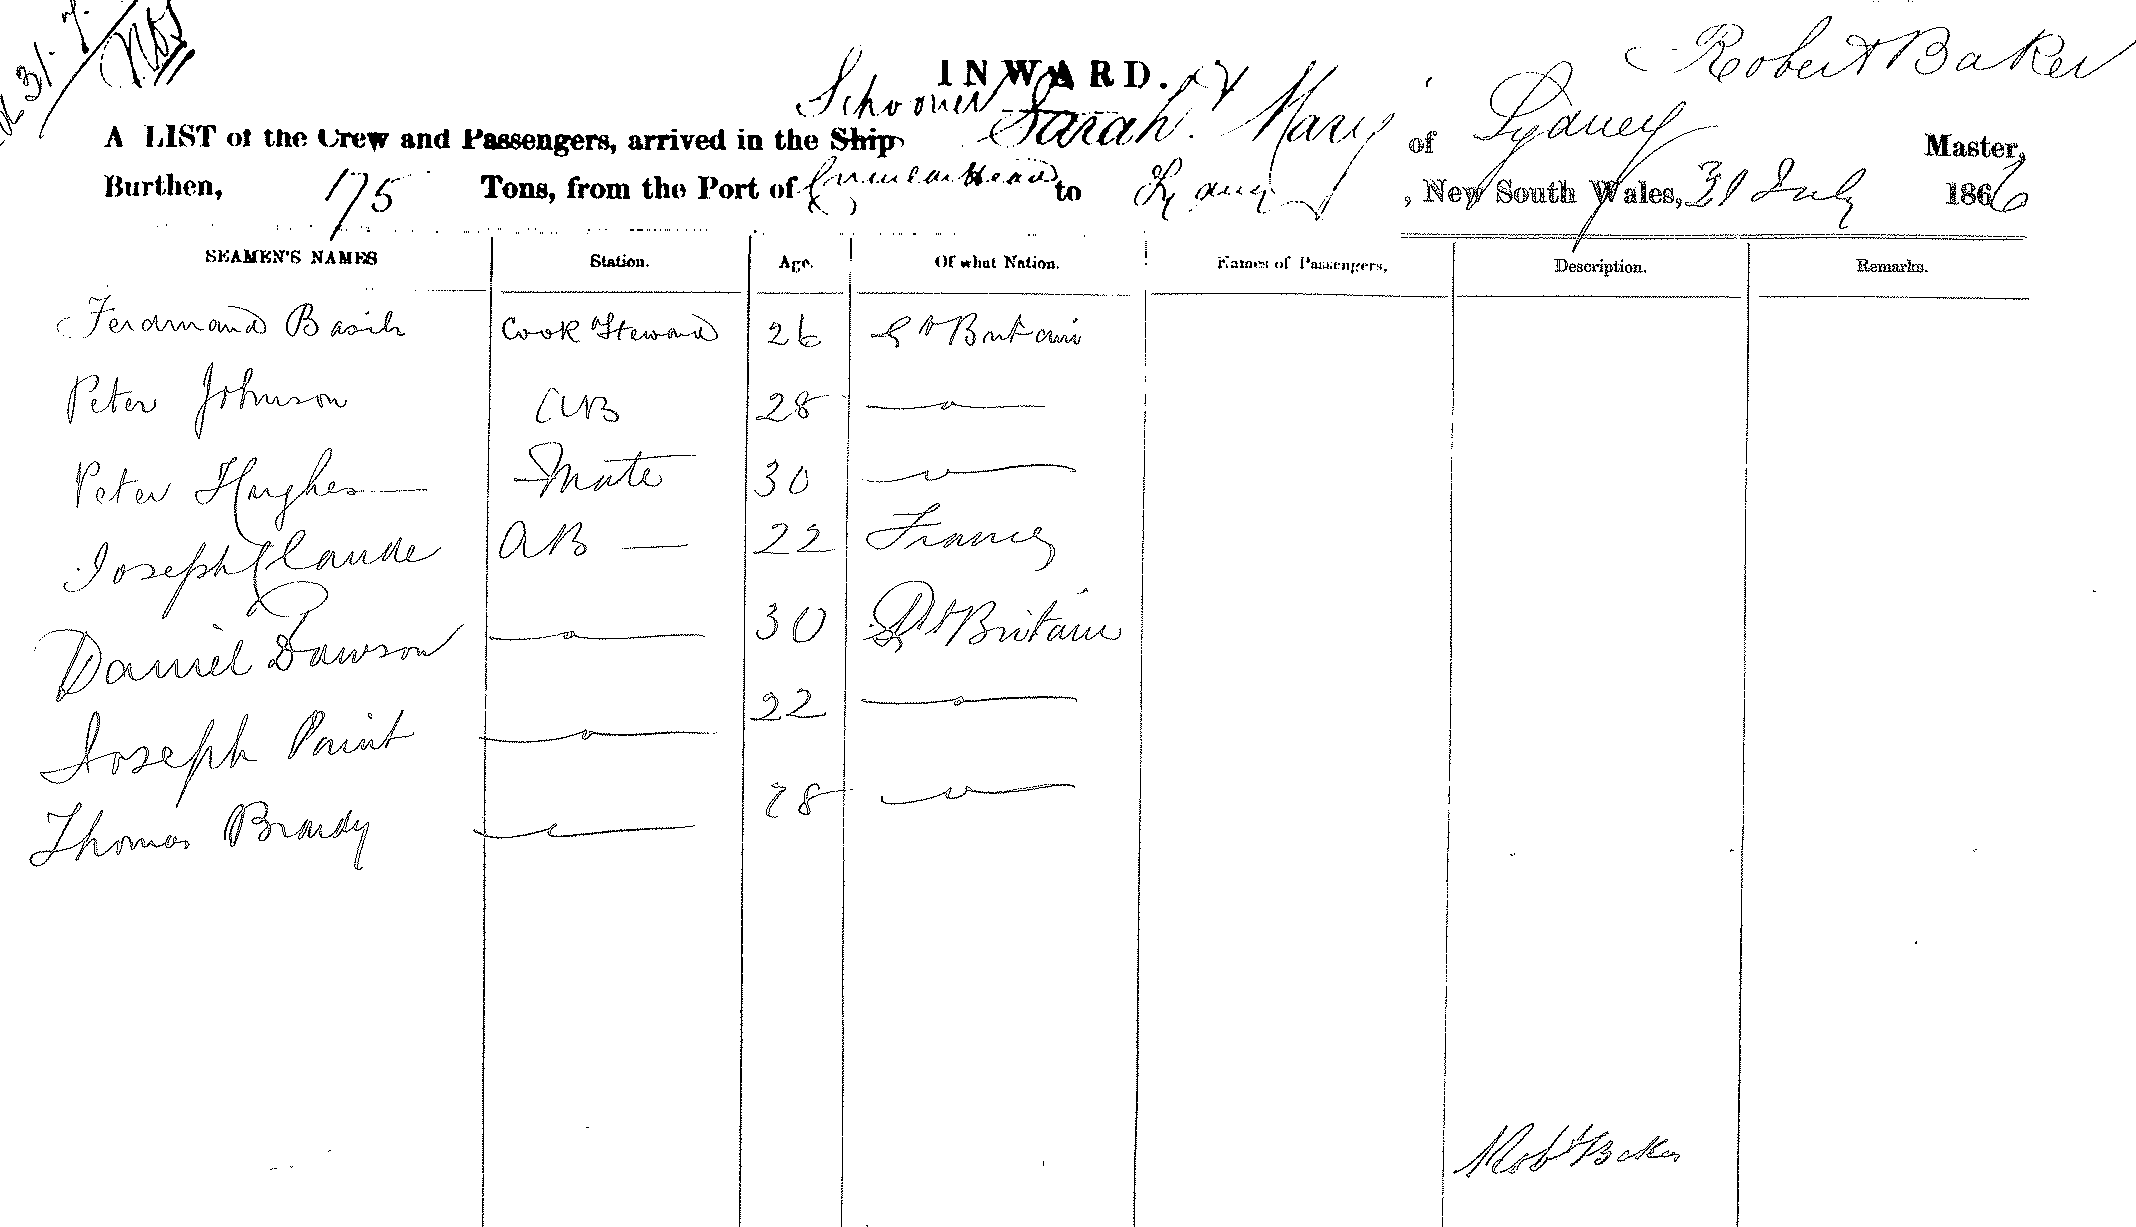 31. 7.
INWARD.
Robert Baker
A LIST of the Crew and Passengers, arrived in the Ship Schooner Sarah & Mary of Sydney Master,
Burthen, 175 Tons, from the Port of to Sydney, New South Wales, 31 July 1866
SEAMEN'S NAMES Station. Age. Of what Nation. Names of Passengers, Description. Remarks.
Ferdinand Basih Cook & Steward 26 Gt Britain
Peter Johnson AB 28 —〃—
Peter Hughes — Mate 30 —〃—
Joseph Claude AB — 22 France
Daniel Dawson —〃— 30 Gt Britain
Joseph Paint —〃— 22 —〃—
Thomas Brardy —〃— 28 —〃—
Robt Baker